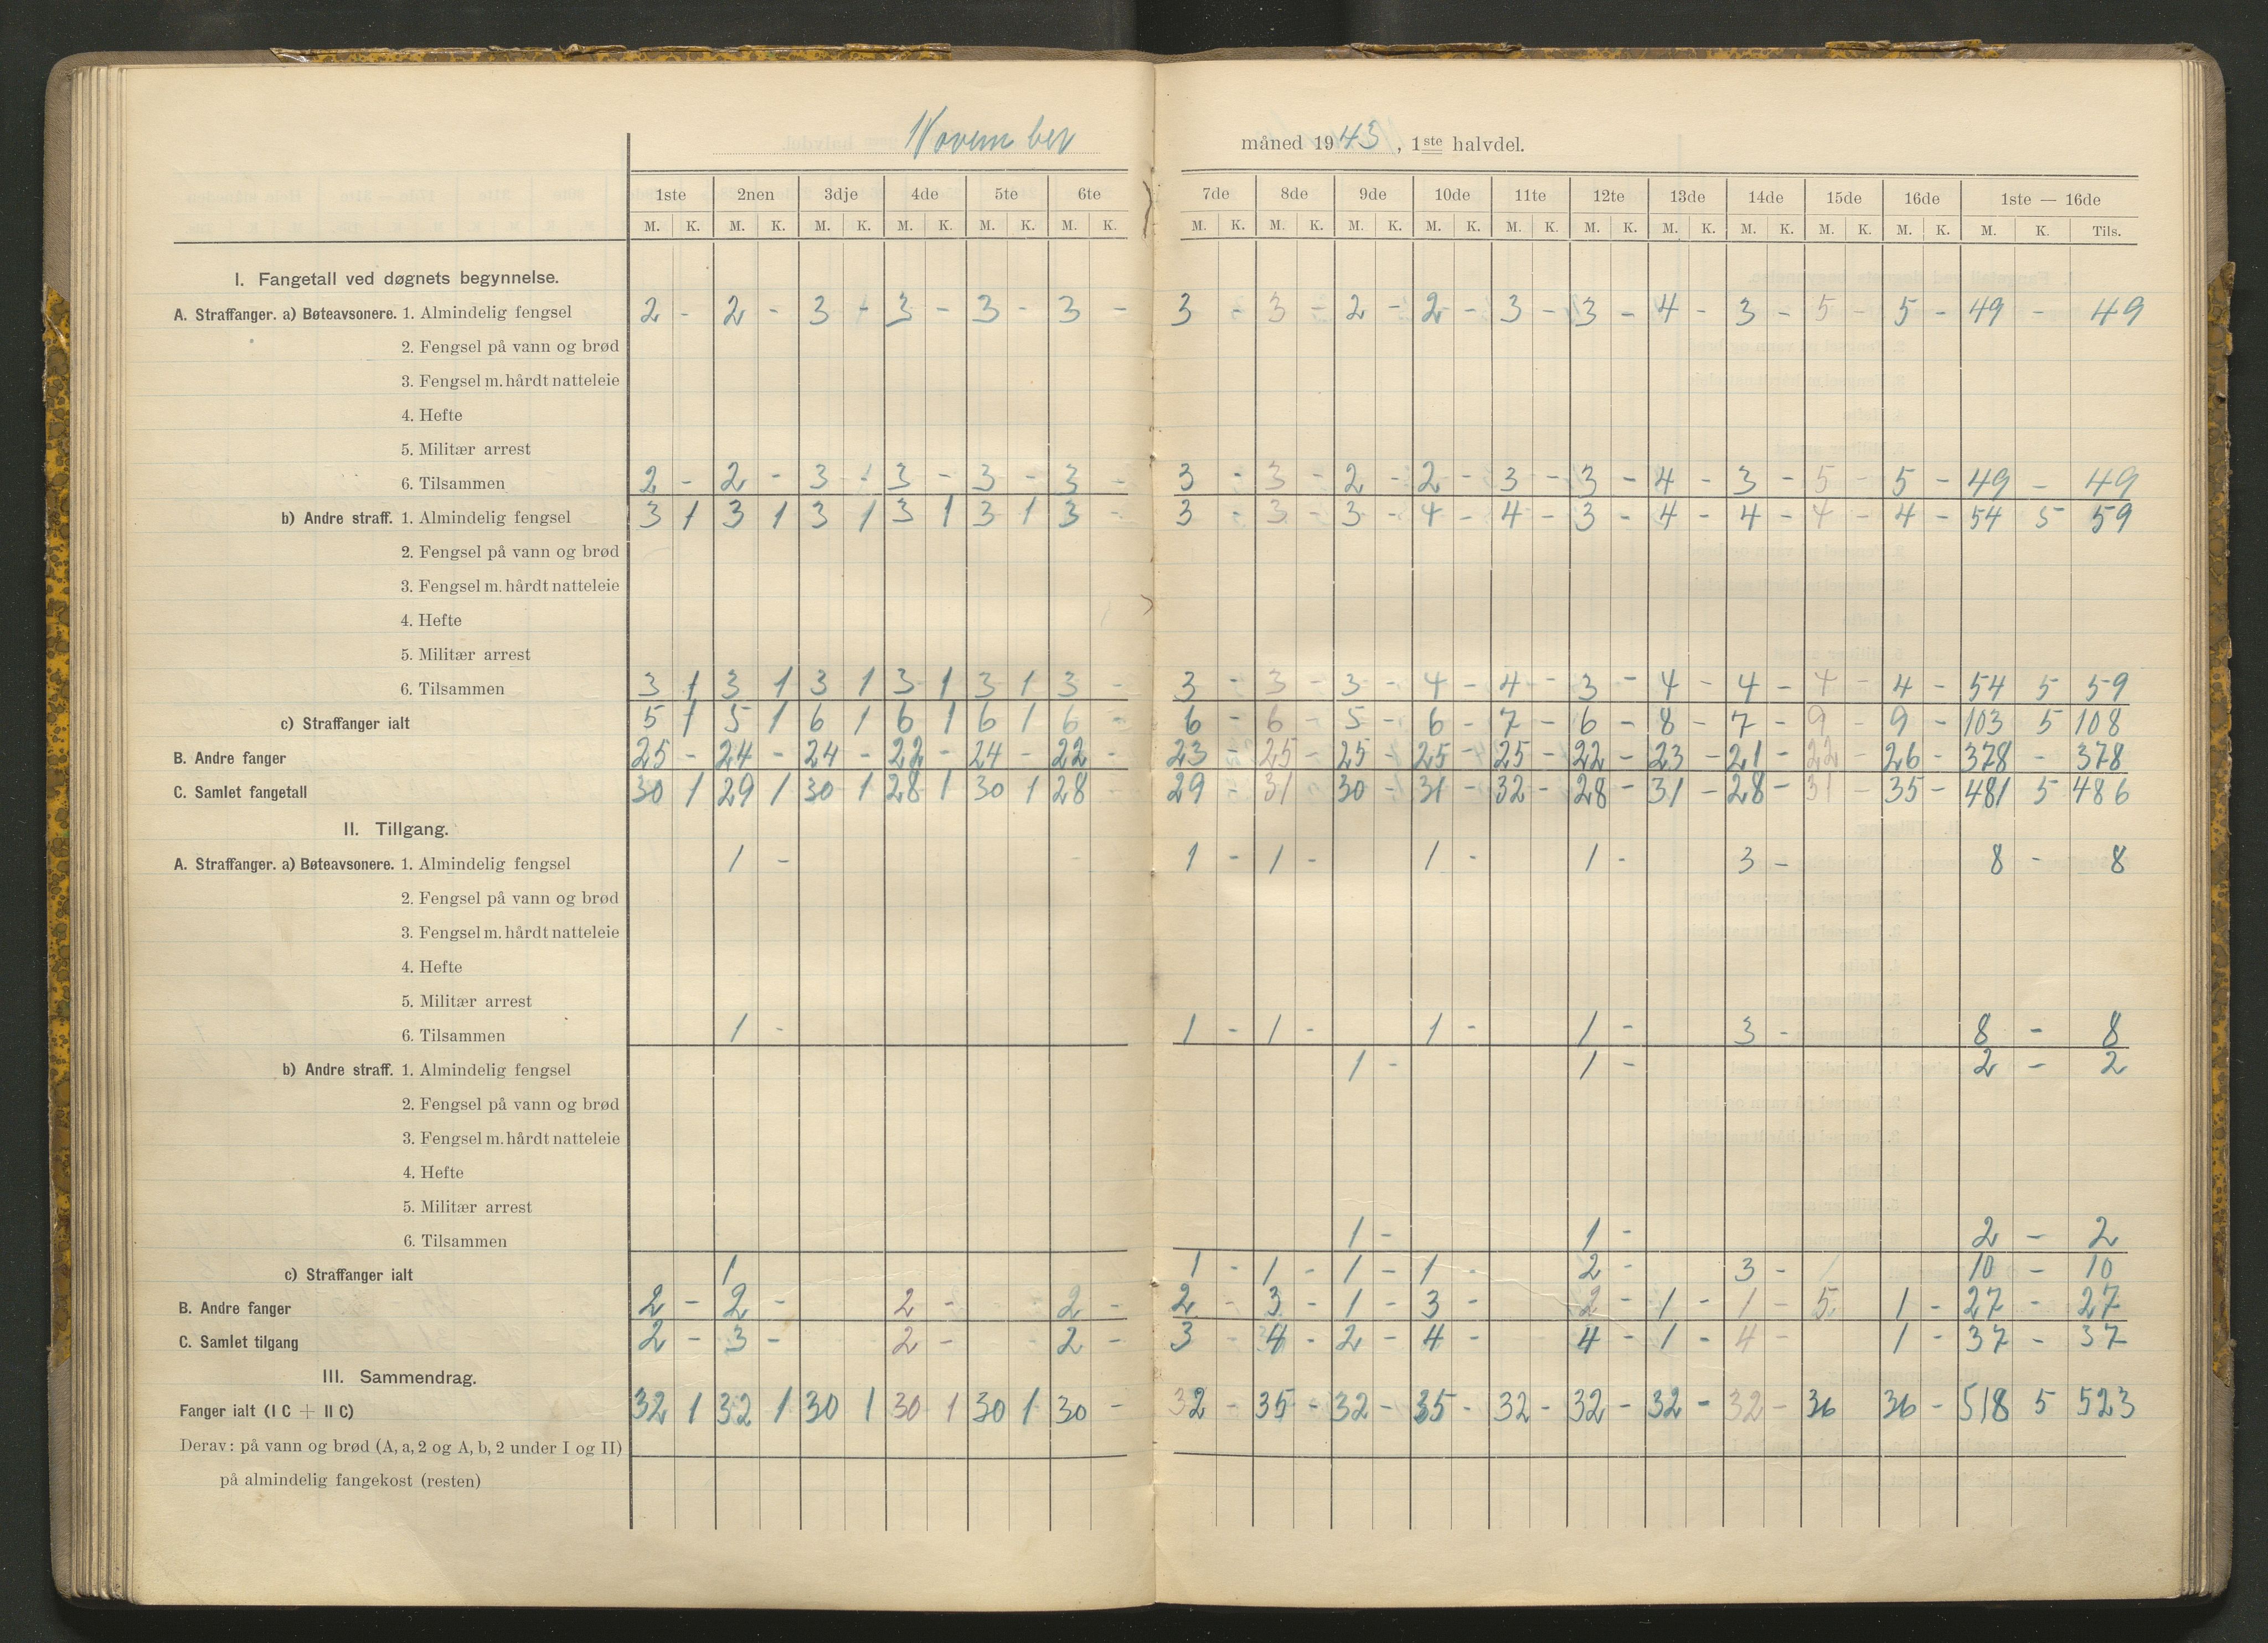 November måned 1943, 1ste halvdel.
1ste 2nen 3dje 4de 5te 6te 7de 8de 9de 10de 11te 12te 13de 14de 15de 16de 1ste — 16de
M. K. M. K. M. K. M. K. M. K. M. K. M. K. M. K. M. K. M. K. M. K. M. K. M. K. M. K. M. K. M. K. M. K. Tils.
I. Fangetall ved døgnets begynnelse.
A. Straffanger. a) Bøteavsonere. 1. Almindelig fengsel 2 - 2 - 3 - 3 - 3 - 3 - 3 - 3 - 2 - 2 - 3 - 3 - 4 - 3 - 5 - 5 - 49 - 49
2. Fengsel på vann og brød
3. Fengsel m. hårdt natteleie
4. Hefte
5. Militær arrest
6. Tilsammen 2 - 2 - 3 - 3 - 3 - 3 - 3 - 3 - 2 - 2 - 3 - 3 - 4 - 3 - 5 - 5 - 49 - 49
b) Andre straff. 1. Almindelig fengsel 3 1 3 1 3 1 3 1 3 1 3 - 3 - 3 - 3 - 4 - 4 - 3 - 4 - 4 - 4 - 4 - 54 5 59
2. Fengsel på vann og brød
3. Fengsel m. hårdt natteleie
4. Hefte
5. Militær arrest
6. Tilsammen 3 1 3 1 3 1 3 1 3 1 3 - 3 - 3 - 3 - 4 - 4 - 3 - 4 - 4 - 4 - 4 - 54 5 59
c) Straffanger ialt 5 1 5 1 6 1 6 1 6 1 6 - 6 - 6 - 5 - 6 - 7 - 6 - 8 - 7 - 9 - 9 - 103 5 108
B. Andre fanger 25 - 24 - 24 - 22 - 24 - 22 - 23 - 25 - 25 - 25 - 25 - 22 - 23 - 21 - 22 - 26 - 378 - 378
C. Samlet fangetall 30 1 29 1 30 1 28 1 30 1 28 - 29 - 31 - 30 - 31 - 32 - 28 - 31 - 28 - 31 - 35 - 481 5 486
II. Tillgang.
A. Straffanger. a) Bøteavsonere. 1. Almindelig fengsel 1 - 1 - 1 - 1 - 1 - 3 - 8 - 8
2. Fengsel på vann og brød
3. Fengsel m. hårdt natteleie
4. Hefte
5. Militær arrest
6. Tilsammen 1 - 1 - 1 - 1 - 1 - 3 - 8 - 8
b) Andre straff. 1. Almindelig fengsel 1 - 1 - 2 - 2
2. Fengsel på vann og brød
3. Fengsel m. hårdt natteleie
4. Hefte
5. Militær arrest
6. Tilsammen 1 - 1 - 2 - 2
c) Straffanger ialt 1 1 - 1 - 1 - 1 - 2 - 3 - 10 - 10
B. Andre fanger 2 - 2 - 2 - 2 - 2 - 3 - 1 - 3 - 2 - 1 - 1 - 5 1 - 27 - 27
C. Samlet tilgang 2 - 3 - 2 - 2 - 3 - 4 - 2 - 4 - 4 - 1 - 4 - 1 - 37 - 37
III. Sammendrag.
Fanger ialt (I C + II C) 32 1 32 1 30 1 30 1 30 1 30 - 32 - 35 - 32 - 35 - 32 - 32 - 32 - 32 - 36 36 - 518 5 523
Derav: på vann og brød (A, a, 2 og A, b, 2 under I og II)
på almindelig fangekost (resten)